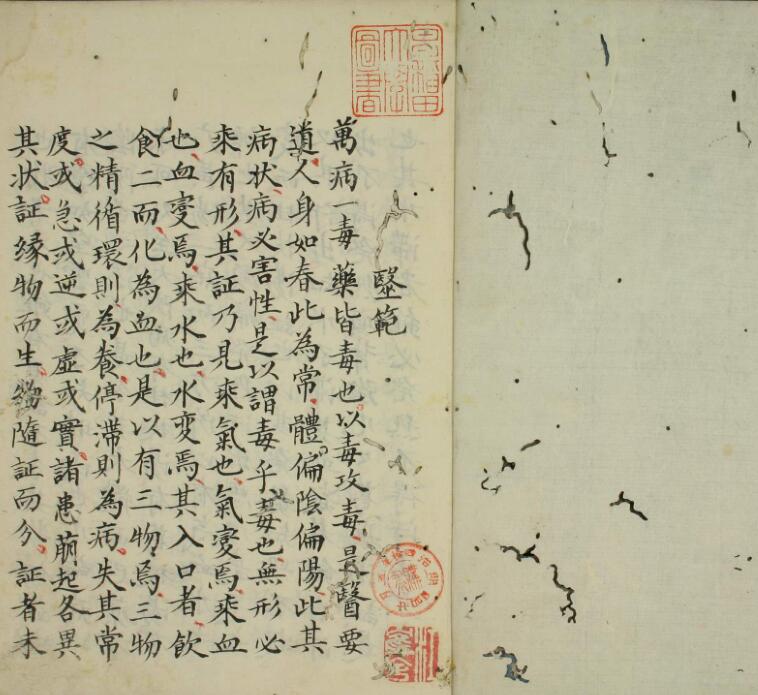 毉範
萬病一毒藥皆毒也以毒攻毒是醫要
道人身如春此為常體偏陰偏陽此其
病状病必害性是以謂毒乎毒也無形必
乘有形其証乃見乘氣也氣變焉乘血
也血變焉乘水也水変焉其入口者飲
食二而化為血也是以有三物焉三物
之精循環則為養停滞則為病失其常
度或急或逆或虚或實諸患萠起各異
其状証縁物而生物隨証而分証者未